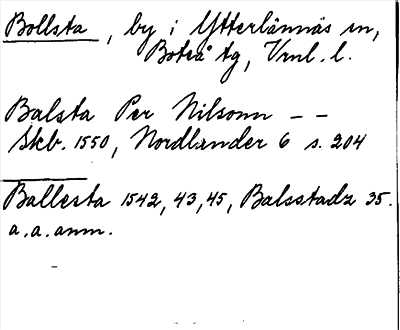 Bollsta, by i Ytterlännäs sn,
Boteå tg, Vrnl. l.
Balsta Per Nilsonn – –
Skb. 1550, Nordlander 6 s. 204
Ballesta 1542, 43, 45, Balsstadz 35.
a. a. anm.